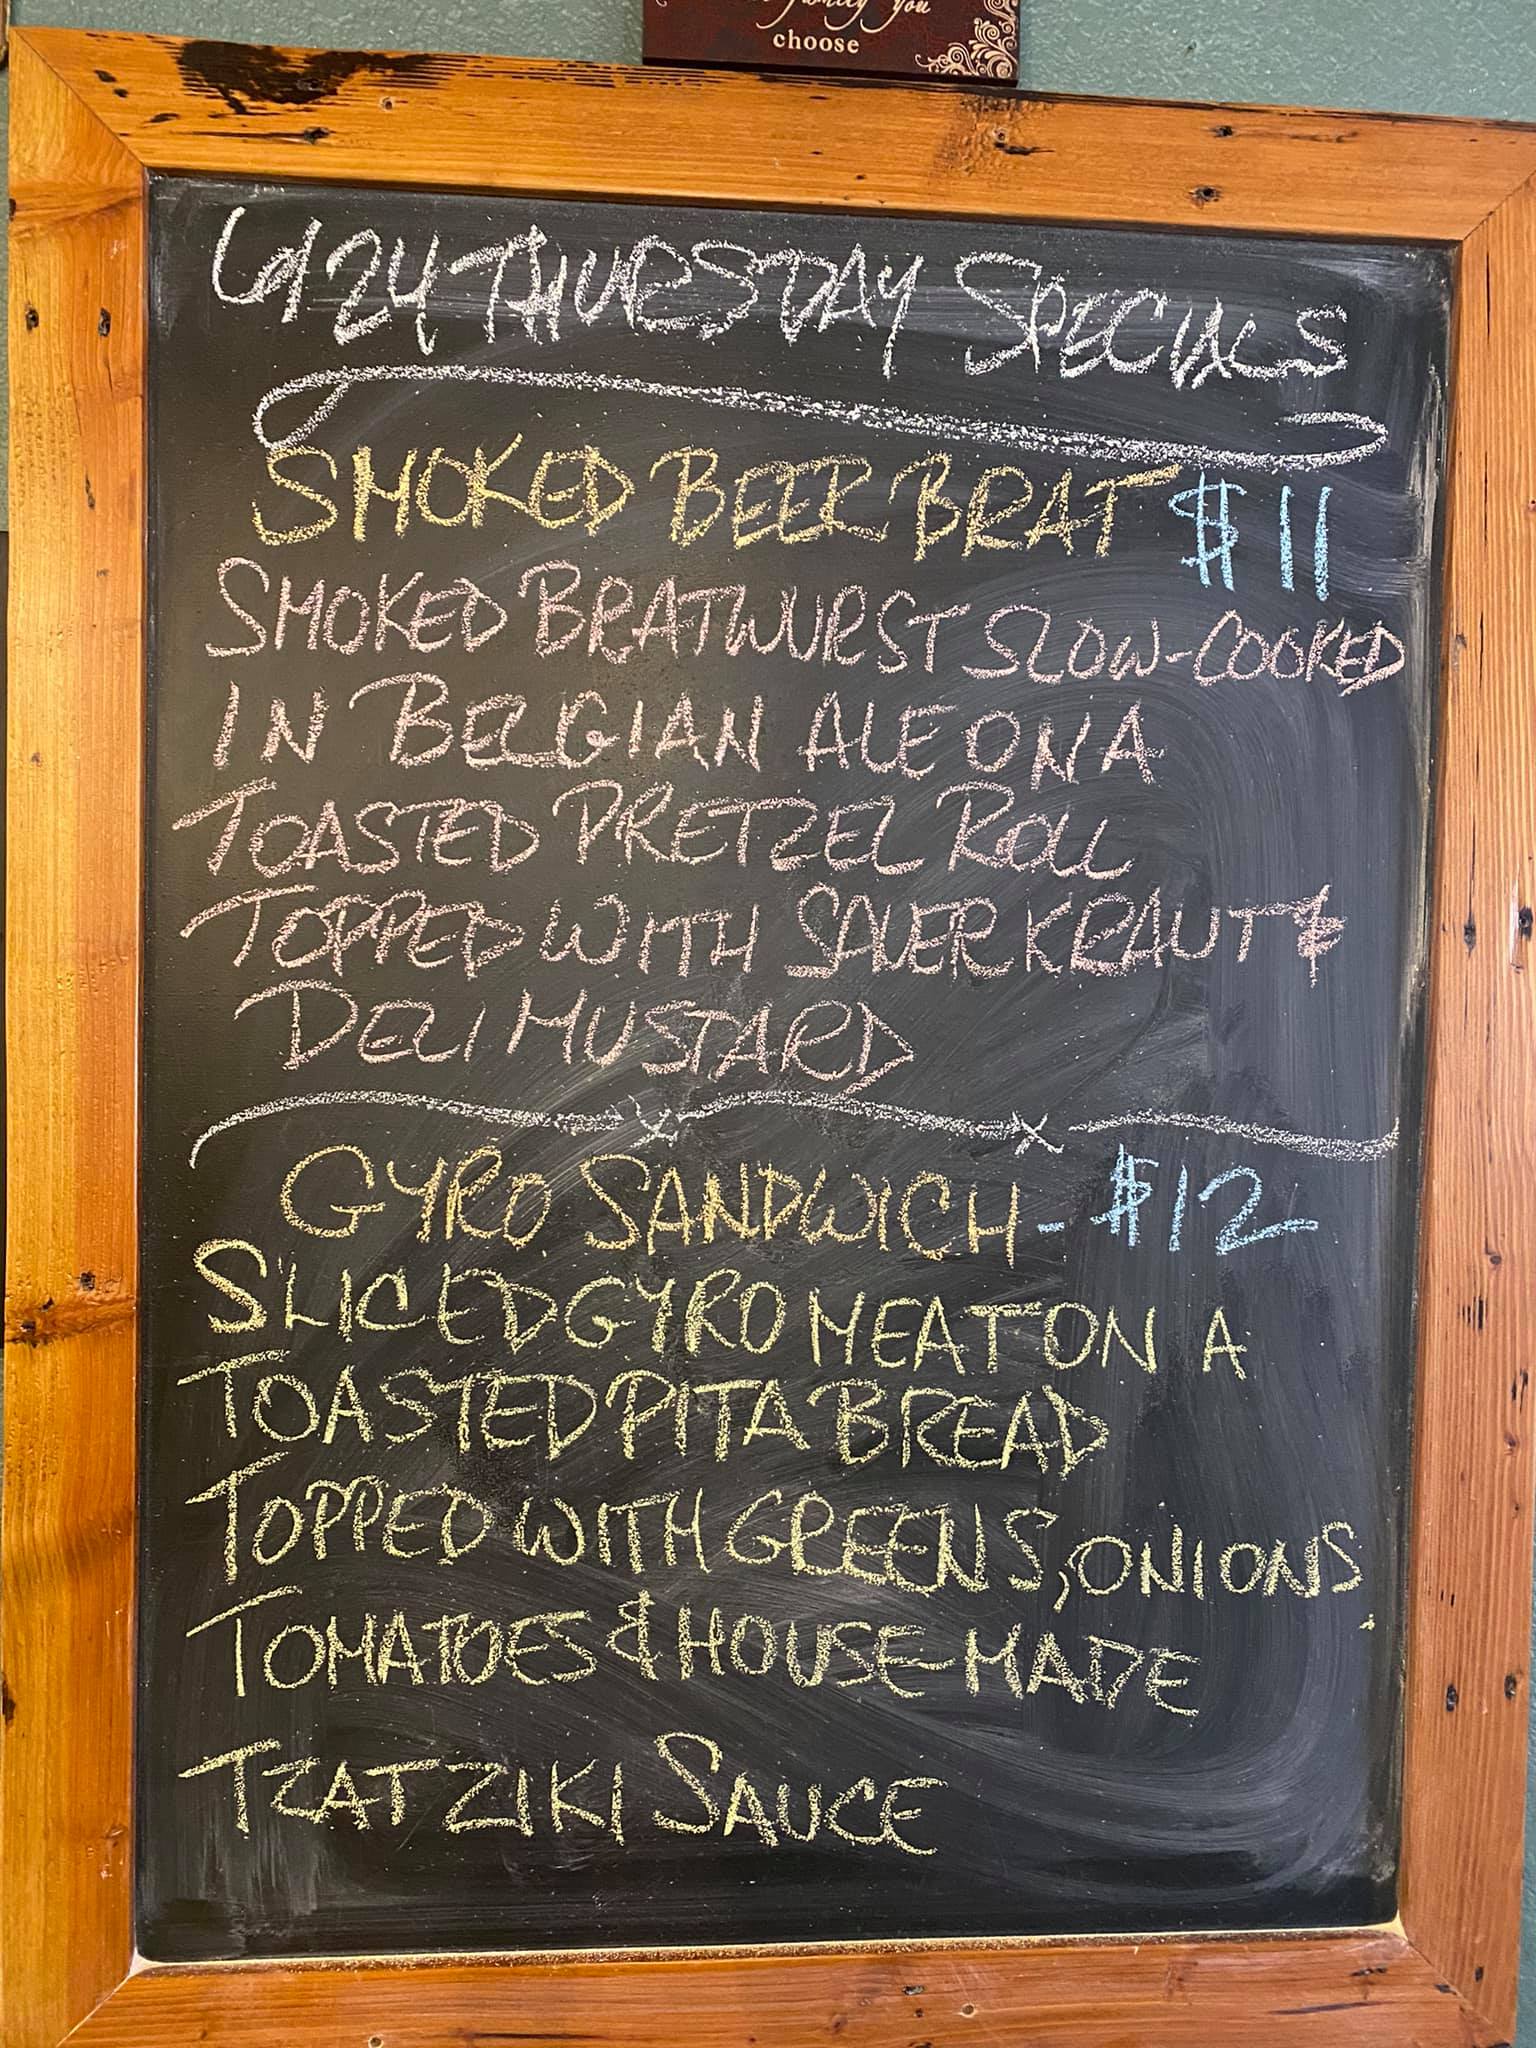 family you
choose
6/24 THURSDAY SPECIALS
SMOKED BEER BRAT $11
SMOKED BRATWURST SLOW-COOKED
IN BELGIAN ALE ON A
TOASTED PRETZEL ROLL
TOPPED WITH SAUERKRAUT &
DELI MUSTARD
GYRO SANDWICH - $12
SLICED GYRO MEAT ON A
TOASTED PITA BREAD
TOPPED WITH GREENS, ONIONS,
TOMATOES & HOUSE-MADE
TZATZIKI SAUCE